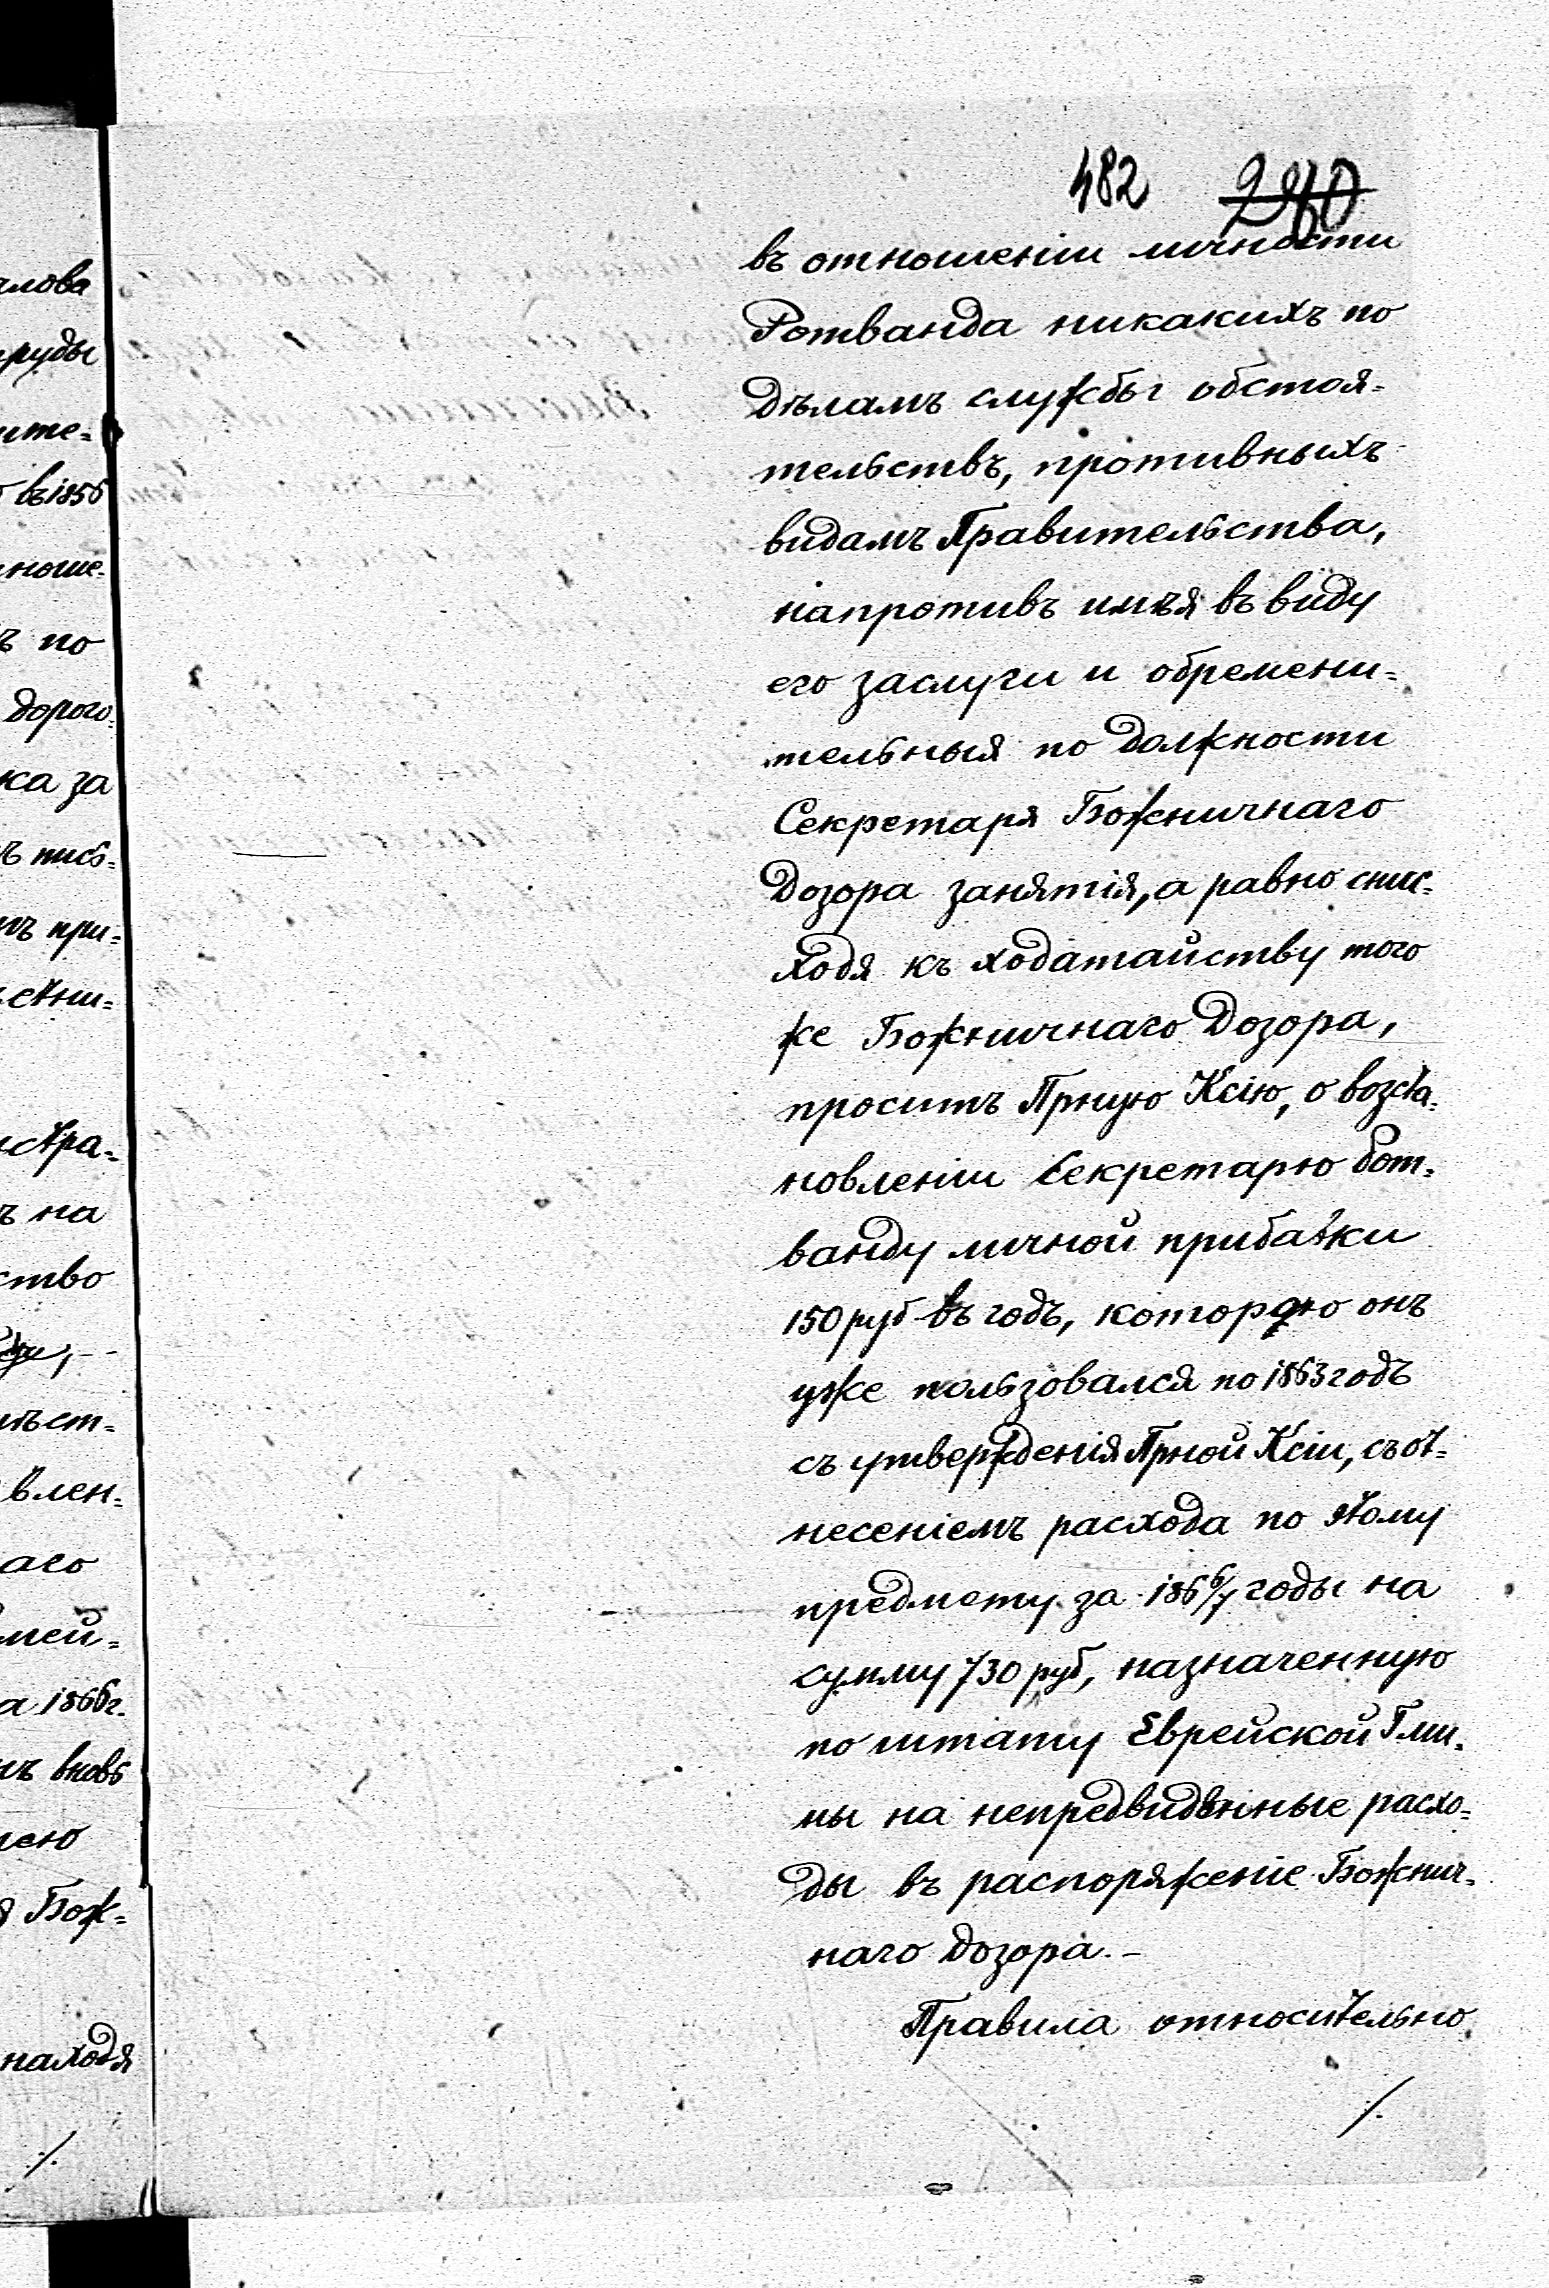 482 280
въ отношеніи личности
Ротванда никакихъ по
дѣламъ службы обстоя=
тельствъ, противныхъ
видамъ Правительства,
напротивъ имѣя въ виду
его заслуги и обремени=
тельныя по должности
Секретаря Божничнаго
Дозора занятія, а равно снис=
ходя къ ходатайству того
же Божничнаго Дозора,
проситъ Прную Ксію, о возста=
новленіи Секретарю Рот=
ванду личной прибавки
150 руб въ годъ, которою онъ
уже пользовался по 1863 годъ
съ утвержденія Прной Ксіи, съ от=
несеніемъ расхода по этому
предмету за 186 6/7 годы на
сумму 730 руб, назначенную
по штату Еврейской Гми=
ны на непредвидѣнные расхо=
ды въ распоряженіе Божнич=
наго Дозора. -
Правила относительно
/.
алова
руды
ите=
въ 1856
ноше=
ъ по
дорого=
ка за
ъ пись=
мъ при=
стра=
ъ на
ство
ѣст=
влен=
аго
мей=
а 1866 г.
ъ вновь
ею
Бож=
находя
/.